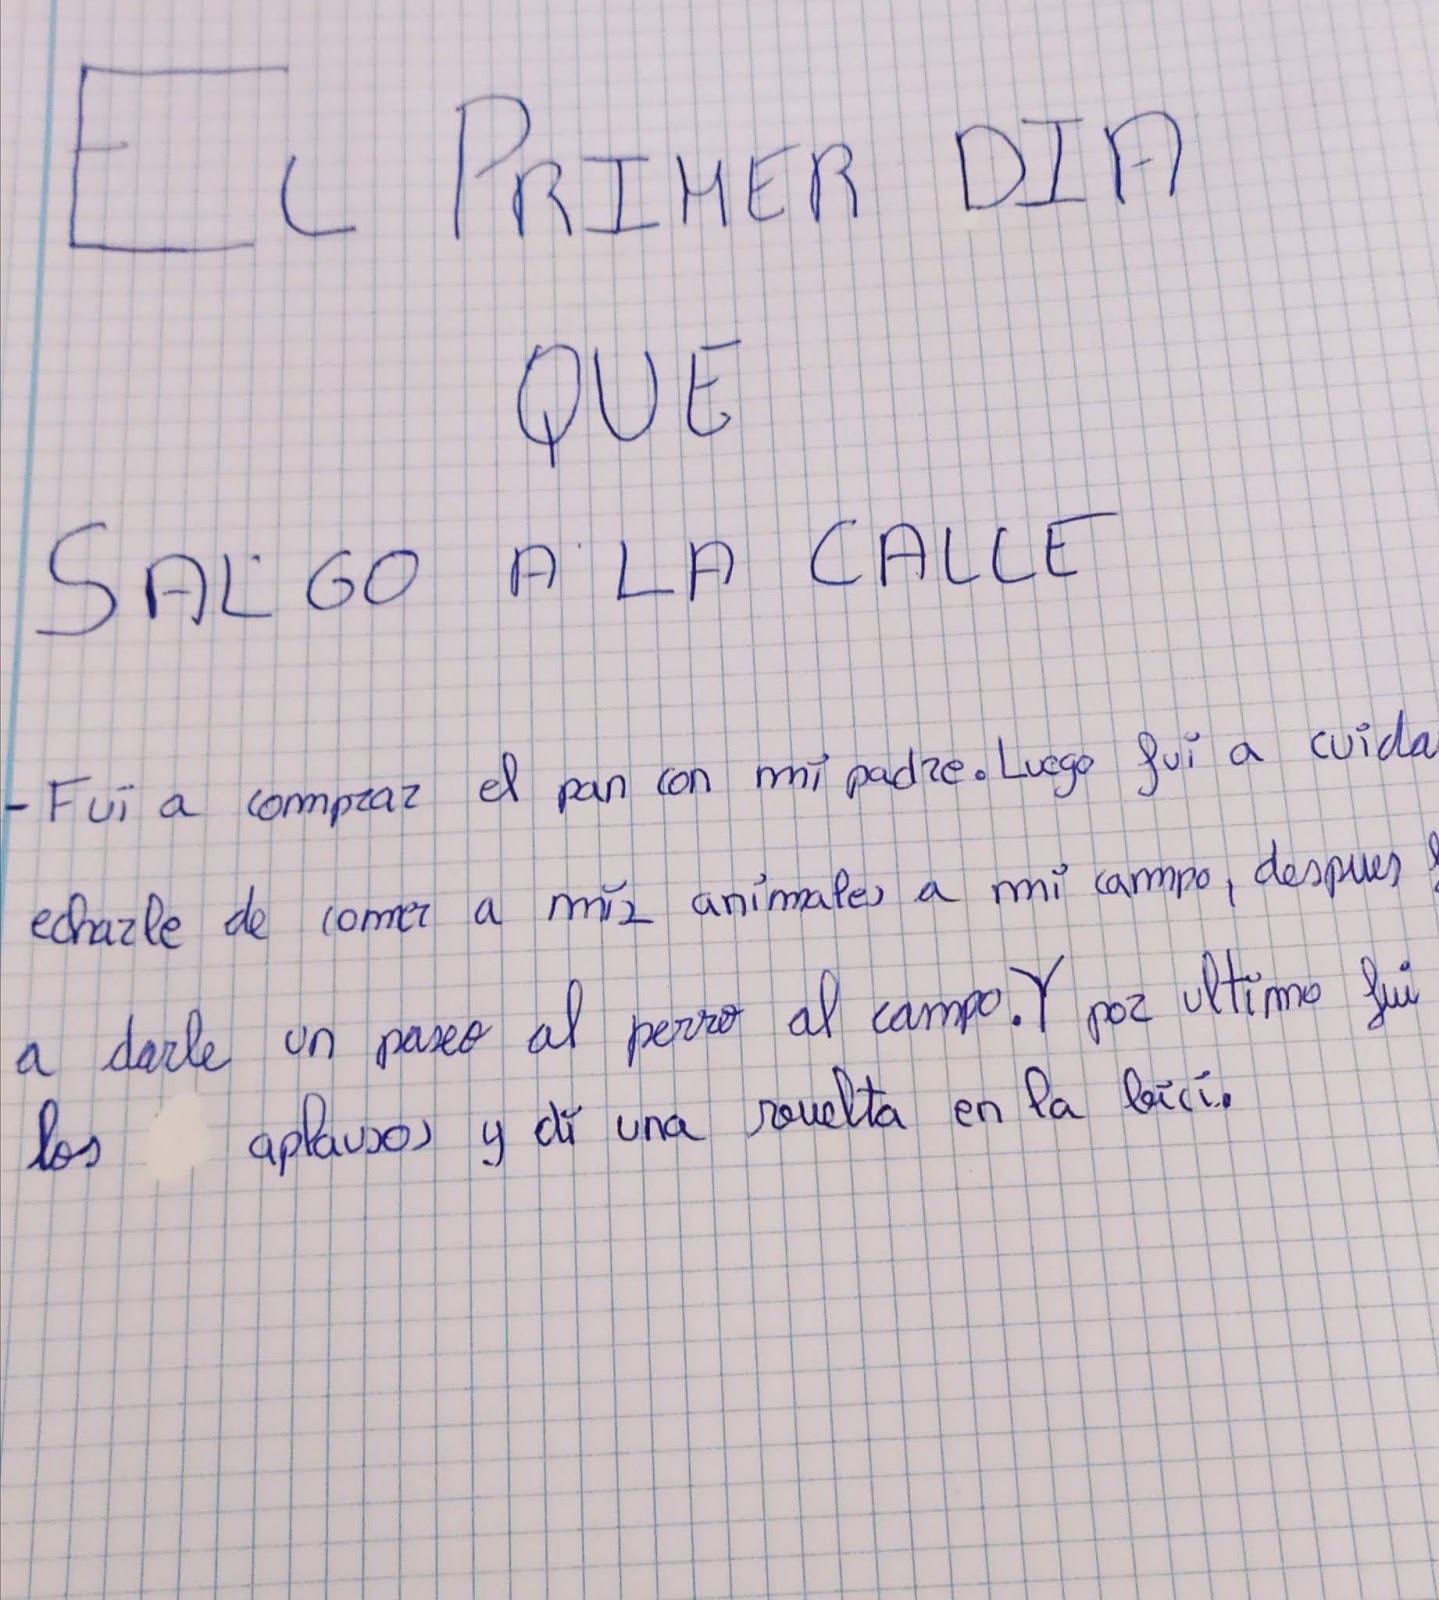 EL PRIMER DIA
QUE
SALGO A LA CALLE
- Fui a comprar el pan con mi padre. Luego fui a cuida
echarle de comer a mis animales a mi campo, despues
a darle un paseo al perro al campo. Y por ultimo fui
los aplausos y di una vuelta en la bici.